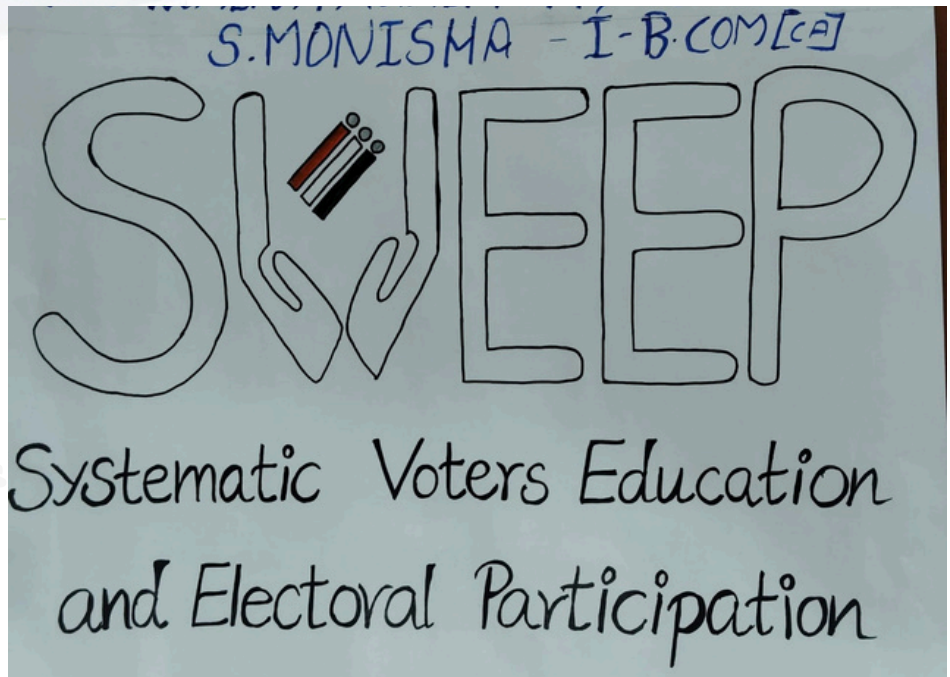 S.MONISHA - I-B.COM[CA]
SWEEP
Systematic Voters Education
and Electoral Participation